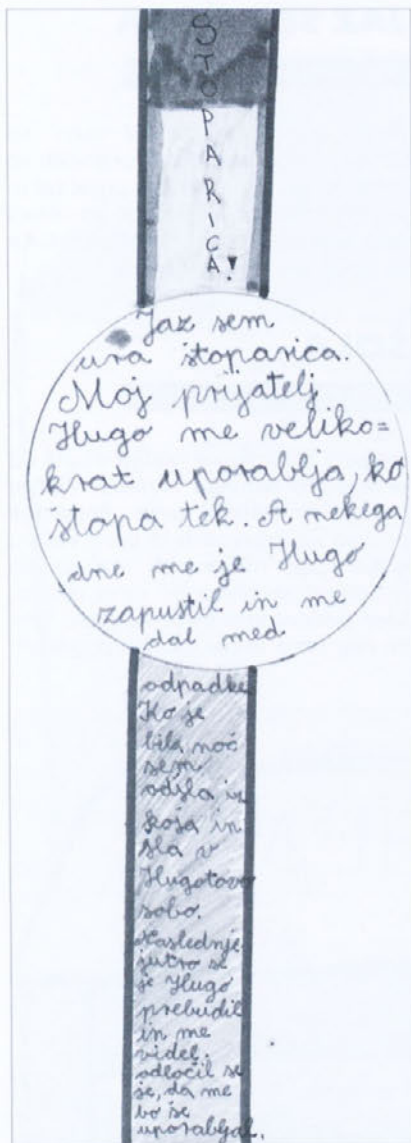 ŠTOPARICA!
Jaz sem
ura štoparica.
Moj prijatelj
Hugo me veliko=
krat uporablja, ko
štopa tek. A nekega
dne me je Hugo
zapustil in me
dal med
odpadke
Ko je
bila noč
sem
odšla iz
koša in
šla v
Hugotovo
sobo.
Naslednje
jutro se
je Hugo
prebudil
in me
videl.
odločil se
je, da me
bo še
uporabljal.